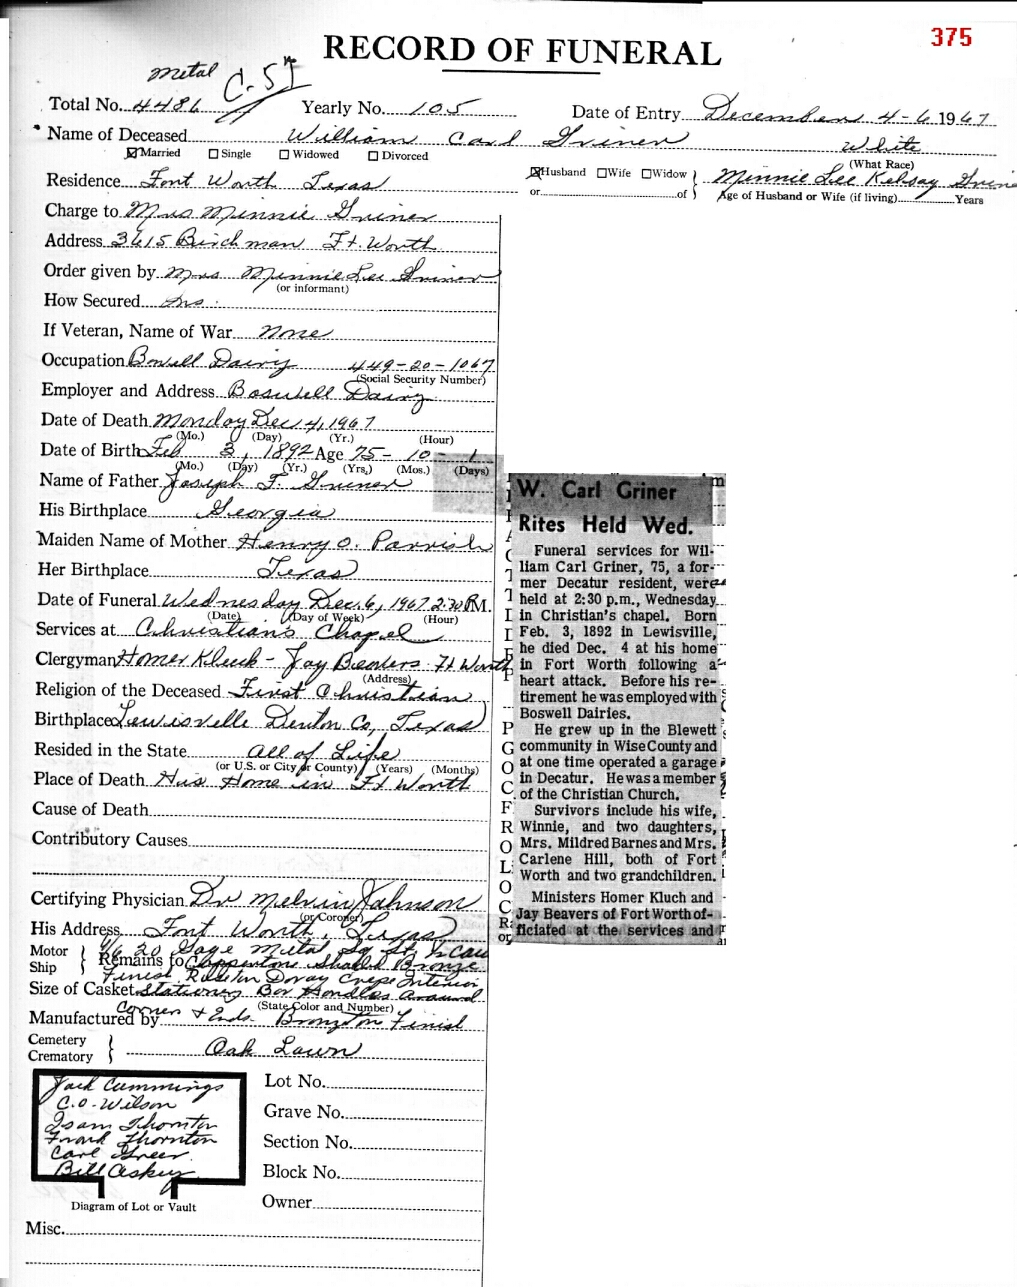 375
RECORD OF FUNERAL
Metal
Total No. 4486 Yearly No. 105 Date of Entry December 4-6 1967
Name of Deceased William Carl Griner White
Married Single Widowed Divorced (What Race)
Residence Fort Worth Texas Husband Wife Widow Minnie Lee Kelsay Griner
or of Age of Husband or Wife (if living) Years
Charge to Mrs Minnie Griner
Address 3615 Birchman Ft. Worth
Order given by Mrs Minnie Lee Griner
(or informant)
How Secured Ins.
If Veteran, Name of War None
Occupation Bowell Dairy 449-20-1067
(Social Security Number)
Employer and Address Boswell Dairy
Date of Death Monday Dec 4, 1967
(Mo.) (Day) (Yr.) (Hour)
Date of Birth Feb 3, 1892 Age 75-10-1
(Mo.) (Day) (Yr.) (Yrs.) (Mos.) (Days)
Name of Father Joseph F. Griner
His Birthplace Georgia
Maiden Name of Mother Henry O. Parrish
Her Birthplace Texas
Date of Funeral Wednesday Dec. 6, 1967 2:30 P.M.
(Date) (Day of Week) (Hour)
Services at Christians Chapel
Clergyman Homer Kluck - Jay Beavers - Ft Worth
(Address)
Religion of the Deceased First Christian
Birthplace Lewisville Denton Co, Texas
Resided in the State all of Life
(or U.S. or City or County) (Years) (Months)
Place of Death His Home in Ft Worth
Cause of Death
Contributory Causes
Certifying Physician Dr Melvin Johnson
(or Coroner)
His Address Fort Worth, Texas
Motor
Ship
Remains to
20 Gage Metal Sq
Coppertone Shaded Bronze
Finish Crepe Interior
Size of Casket Stationery Bar Handles around
(State Color and Number)
Corner & Ends Finish
Manufactured by
Cemetery
Crematory
Oak Lawn
Jack Cummings
C.O. Wilson
Isam Thornton
Frank Thornton
Carl Greer
Bill Askey
Lot No.
Grave No.
Section No.
Block No.
Owner
Diagram of Lot or Vault
Misc.
W. Carl Griner
Rites Held Wed.
Funeral services for Wil-
liam Carl Griner, 75, a for-
mer Decatur resident, were
held at 2:30 p.m., Wednesday
in Christian's chapel. Born
Feb. 3, 1892 in Lewisville,
he died Dec. 4 at his home
in Fort Worth following a
heart attack. Before his re-
tirement he was employed with
Boswell Dairies.
He grew up in the Blewett
community in Wise County and
at one time operated a garage
in Decatur. He was a member
of the Christian Church.
Survivors include his wife,
Winnie, and two daughters,
Mrs. Mildred Barnes and Mrs.
Carlene Hill, both of Fort
Worth and two grandchildren.
Ministers Homer Kluch and
Jay Beavers of Fort Worth of-
ficiated at the services and